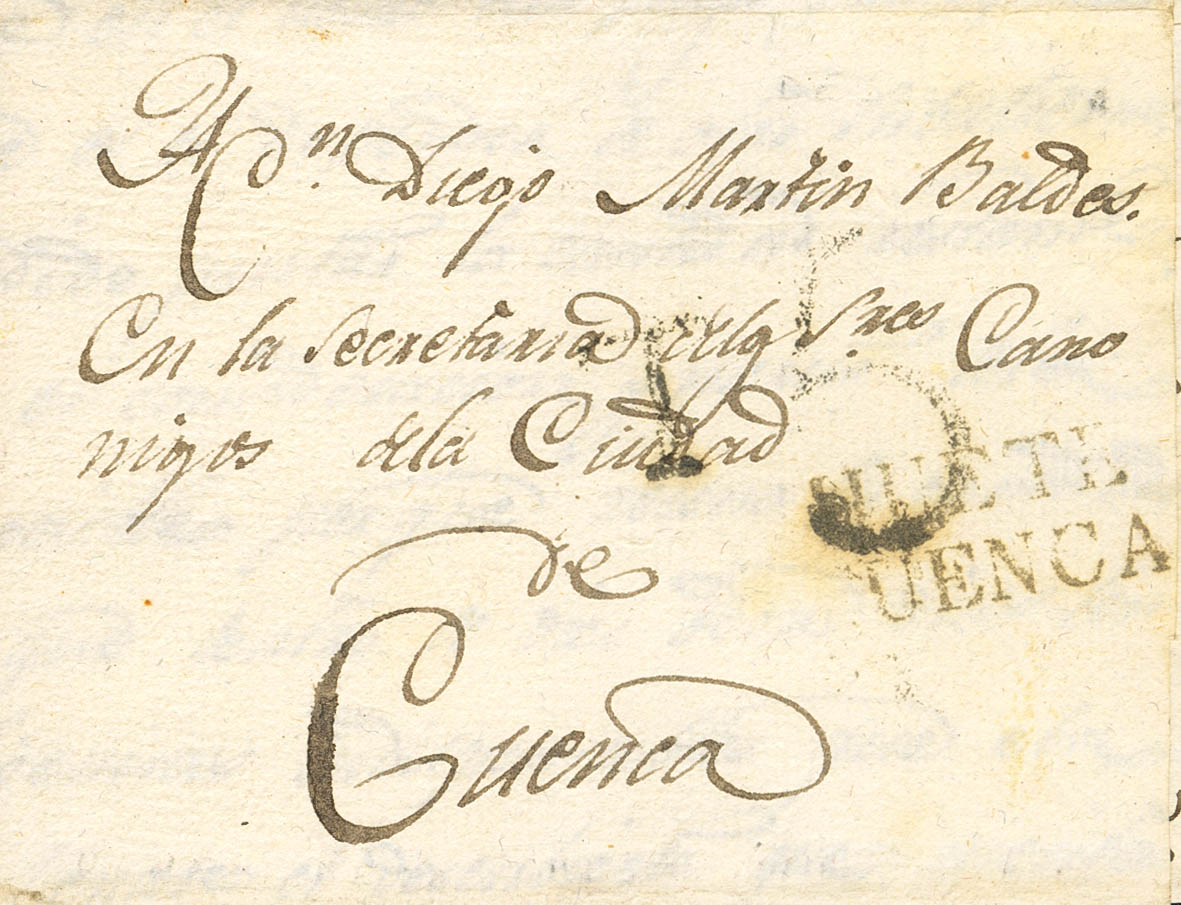 A Dn. Diego Martin Baldes.
En la Secretaria de los Sres Cano
nigos de la Ciudad
de
Cuenca
5
HUETE
CUENCA